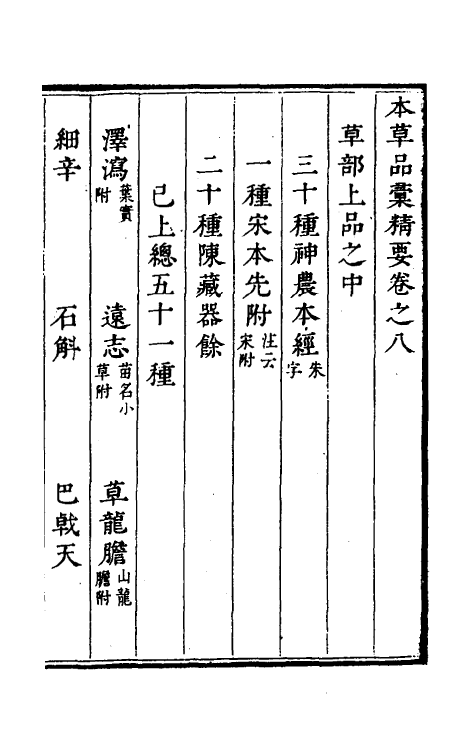 本草品彙精要卷之八
草部上品之中
三十種神農本經朱字
一種宋本先附注云宋附
二十種陳藏器餘
已上總五十一種
澤瀉葉實附 遠志苗名小草附 草龍膽山龍膽附
細辛 石斛 巴戟天